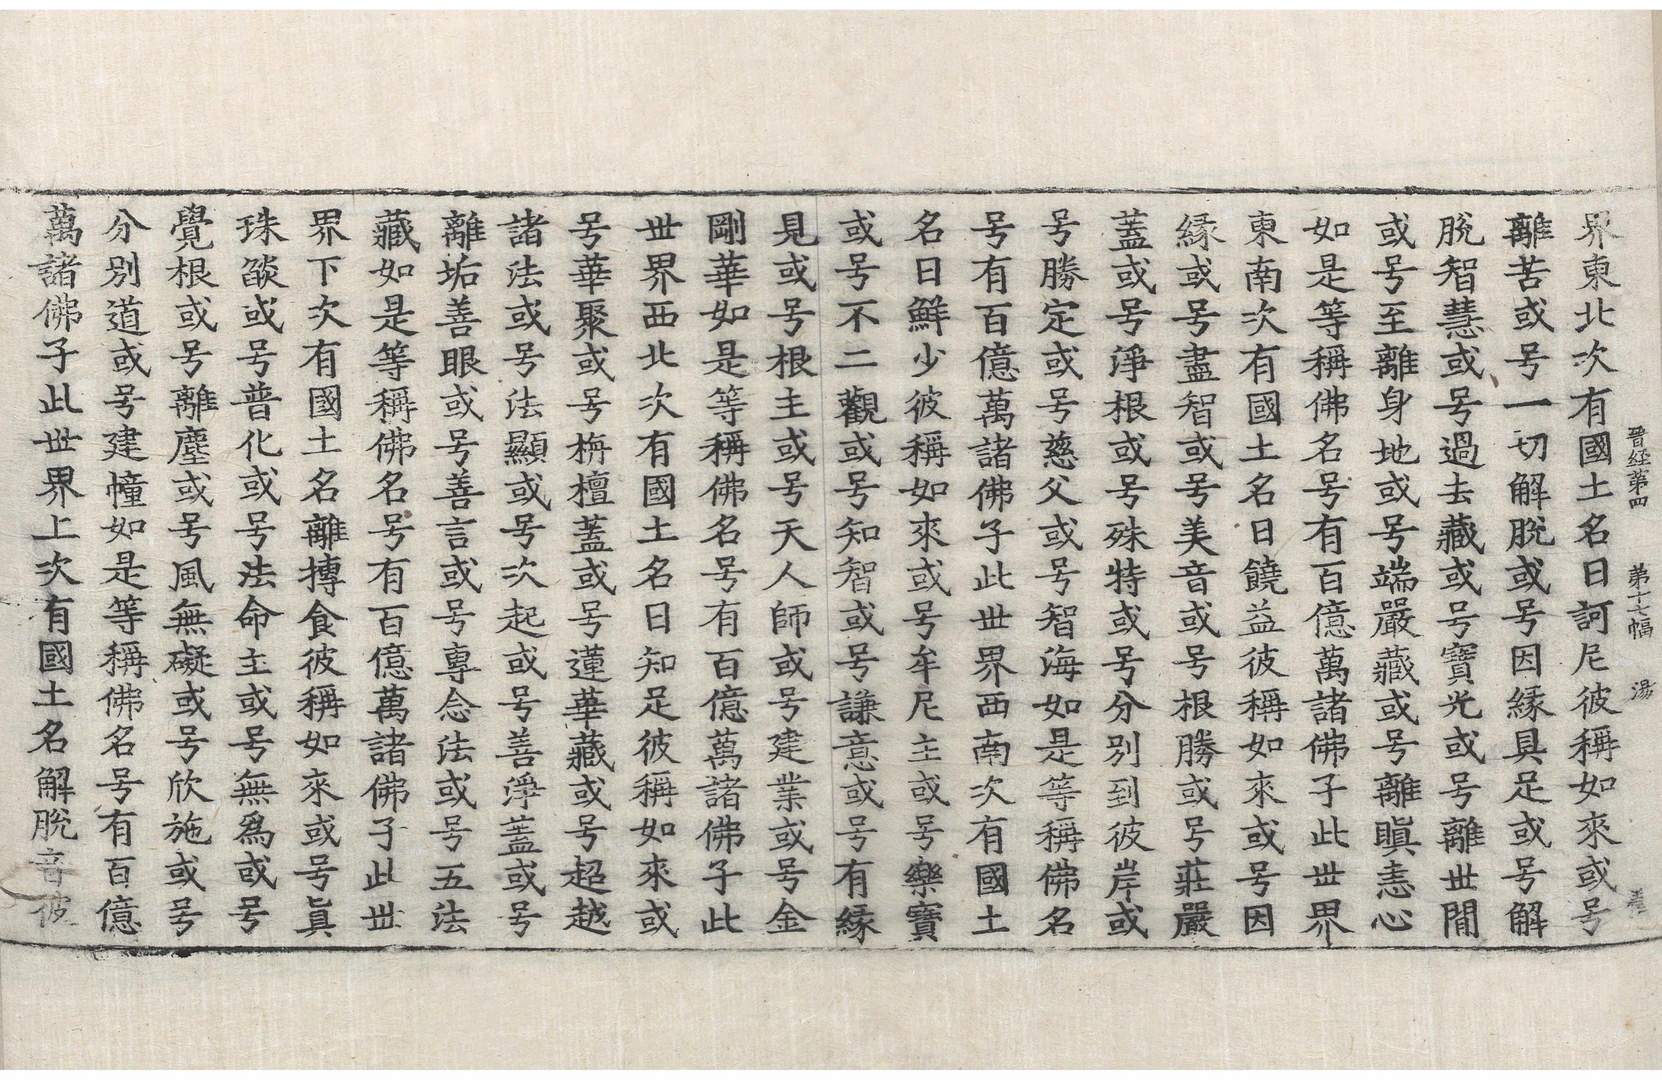 晉経第四 第十七幅 湯
界東北次有國土名曰訶尼彼稱如來或号
離苦或号一切解脫或号因緣具足或号解
脫智慧或号過去藏或号寶光或号離世閒
或号至離身地或号端嚴藏或号離瞋恚心
如是等稱佛名号有百億萬諸佛子此世界
東南次有國土名曰饒益彼稱如來或号因
緣或号盡智或号美音或号根勝或号莊嚴
蓋或号淨根或号殊特或号分別到彼岸或
号勝定或号慈父或号智海如是等稱佛名
号有百億萬諸佛子此世界西南次有國土
名曰鮮少彼稱如來或号牟尼主或号樂寶
或号不二觀或号知智或号謙意或号有緣
見或号根主或号天人師或号建業或号金
剛華如是等稱佛名号有百億萬諸佛子此
世界西北次有國土名曰知足彼稱如來或
号華聚或号栴檀蓋或号蓮華藏或号超越
諸法或号法顯或号次起或号善淨蓋或号
離垢善眼或号善言或号專念法或号五法
藏如是等稱佛名号有百億萬諸佛子此世
界下次有國土名離摶食彼稱如來或号眞
珠燄或号普化或号法命主或号無爲或号
覺根或号離塵或号風無礙或号欣施或号
分別道或号建幢如是等稱佛名号有百億
萬諸佛子此世界上次有國土名解脫音彼